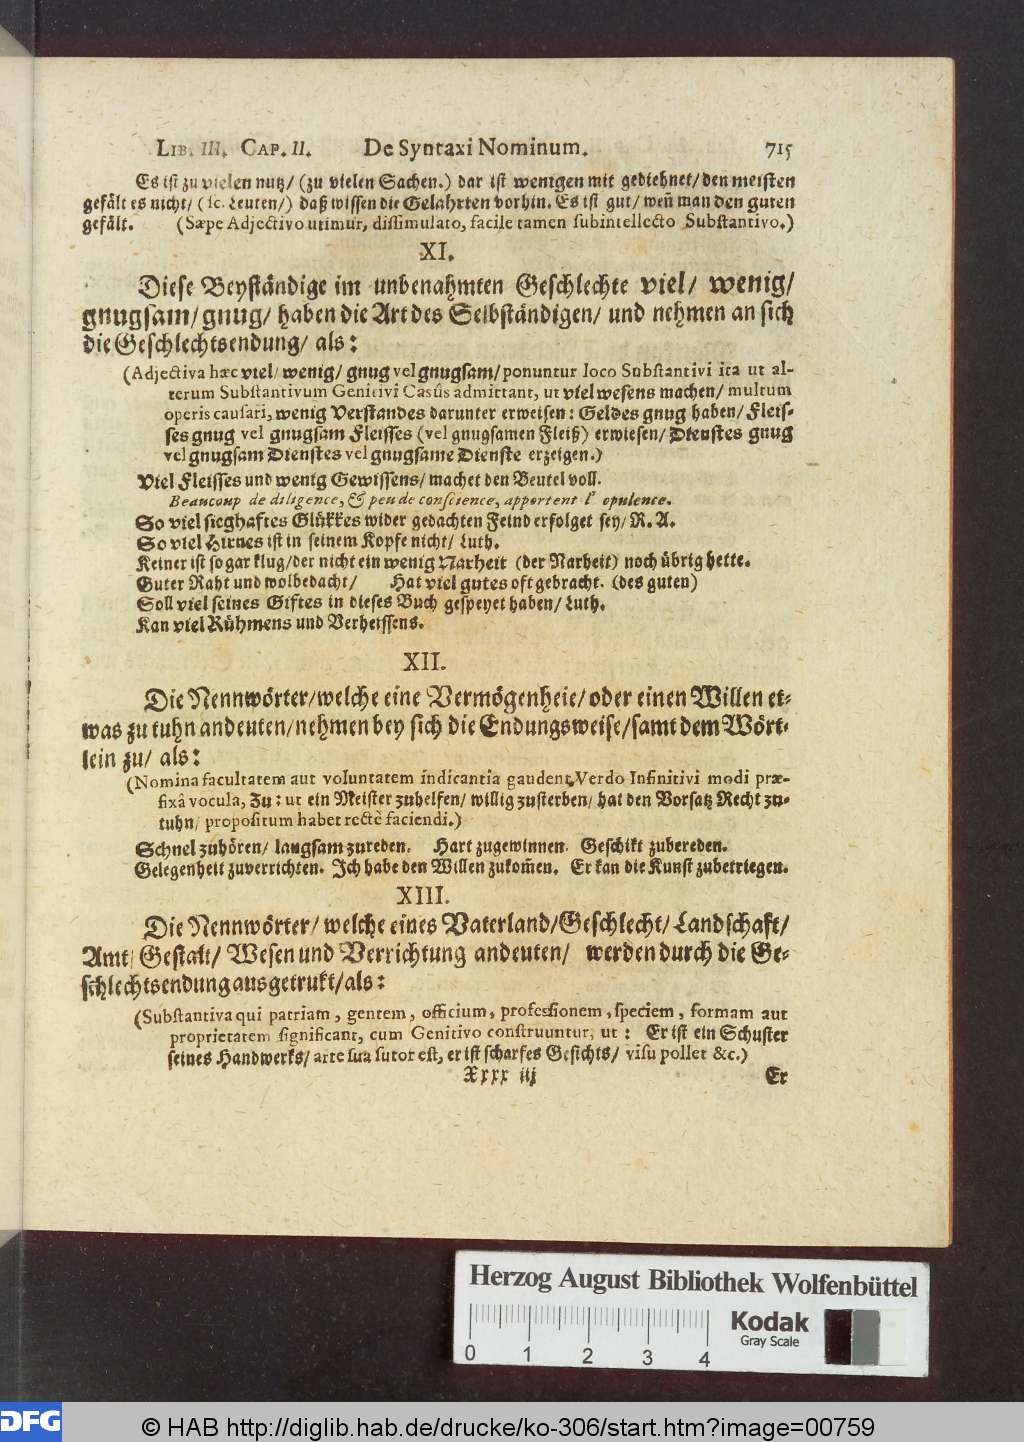 LIB. III. CAP. II. De Syntaxi Nominum. 715
Es ist zu vielen nutz/ (zu vielen Sachen.) dar ist wenigen mit gediehnet/ den meisten
gefält es nicht/ (sc. Leuten/) daß wissen die Gelahrten vorhin. Es ist gut/ weñ man den guten
gefält. (Sæpe Adjectivo utimur, dissimulato, facile tamen subintellecto Substantivo.)
XI.
Diese Beyständige im unbenahmten Geschlechte viel/ wenig/
gnugsam/ gnug/ haben die Art des Selbständigen/ und nehmen an sich
die Geschlechtsendung/ als:
(Adjectiva hæc viel/ wenig/ gnug vel gnugsam/ ponuntur loco Substantivi ita ut al-
terum Substantivum Genitivi Casûs admittant, ut viel wesens machen/ multum
operis causari, wenig Verstandes darunter erweisen: Geldes gnug haben/ Fleis-
ses gnug vel gnugsam Fleisses (vel gnugsamen Fleiß) erwiesen/ Dienstes gnug
vel gnugsam Dienstes vel gnugsame Dienste erzeigen.)
Viel Fleisses und wenig Gewissens/ machet den Beutel voll.
Beaucoup de diligence, & peu de conscience, apportent l' opulence.
So viel sieghaftes Glükkes wider gedachten Feind erfolget sey/ R. A.
So viel Hirnes ist in seinem Kopfe nicht/ Luth.
Keiner ist so gar klug/ der nicht ein wenig Narheit (der Narheit) noch übrig hette.
Guter Raht und wolbedacht/ Hat viel gutes oft gebracht. (des guten)
Soll viel seines Giftes in dieses Buch gespeyet haben/ Luth.
Kan viel Rühmens und Verheissens.
XII.
Die Nennwörter/ welche eine Vermögenheie/ oder einen Willen et-
was zu tuhn andeuten/ nehmen bey sich die Endungsweise/ samt dem Wört-
lein zu/ als:
(Nomina facultatem aut voluntatem indicantia gaudent Verdo Infinitivi modi præ-
fixâ vocula, Zu: ut ein Meister zuhelfen/ willig zusterben/ hat den Vorsatz Recht zu-
tuhn/ propositum habet rectè faciendi.)
Schnel zuhören/ langsam zureden. Hart zugewinnen. Geschikt zubereden.
Gelegenheit zuverrichten. Ich habe den Willen zukom̃en. Er kan die Kunst zubetriegen.
XIII.
Die Nennwörter/ welche eines Vaterland/ Geschlecht/ Landschaft/
Amt/ Gestalt/ Wesen und Verrichtung andeuten/ werden durch die Ge-
schlechtsendung ausgetrukt/ als:
(Substantiva qui patriam, gentem, officium, professionem, speciem, formam aut
proprietatem significant, cum Genitivo construuntur, ut: Er ist ein Schuster
seines Handwerks/ arte sua sutor est, er ist scharfes Gesichts/ visu pollet &c.)
Xxxx iij Er
Herzog August Bibliothek Wolfenbüttel
Kodak
Gray Scale
0 1 2 3 4
DFG
© HAB http://diglib.hab.de/drucke/ko-306/start.htm?image=00759